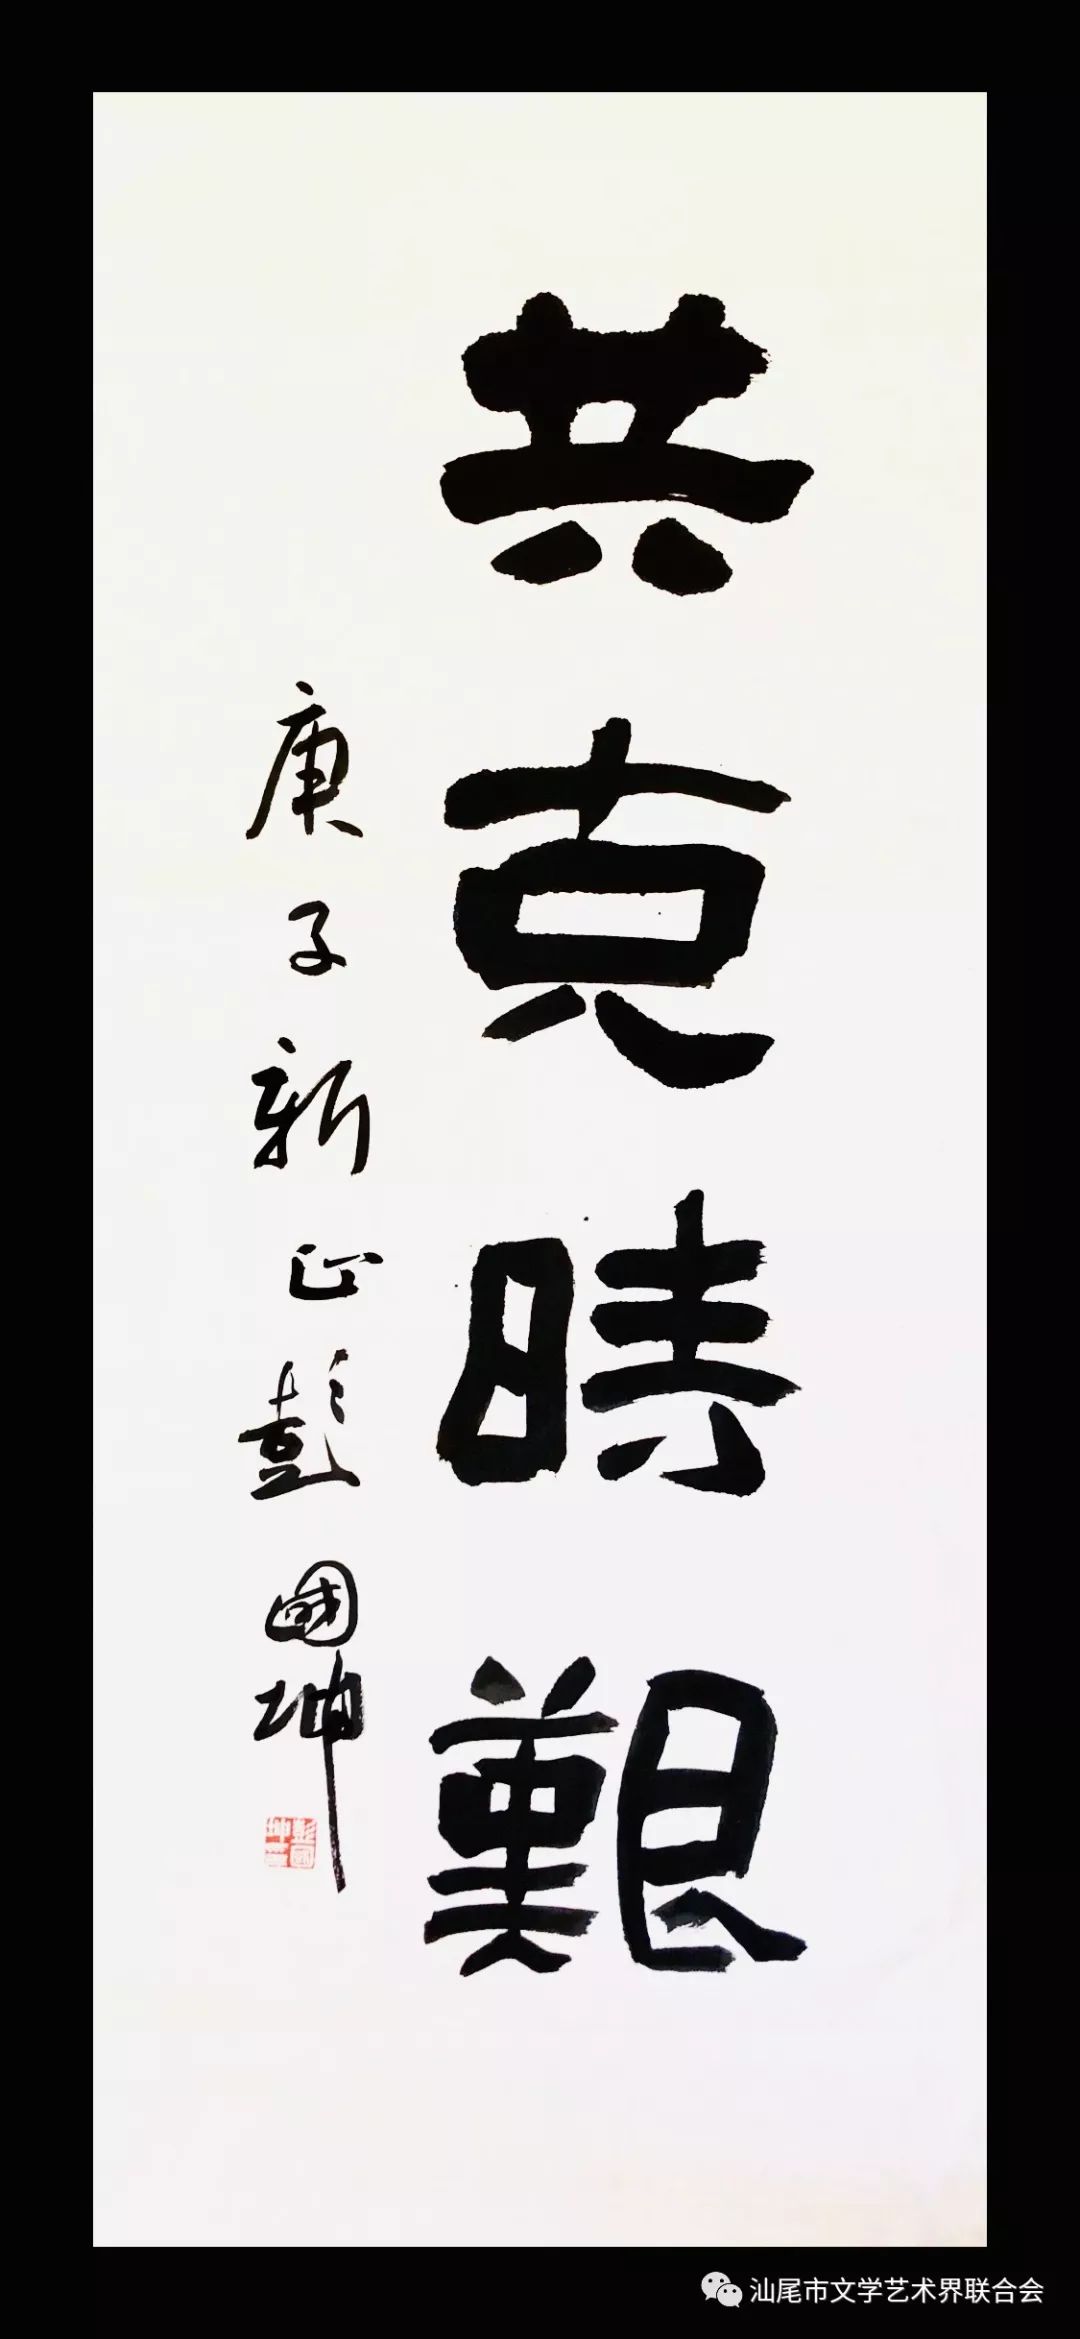 共克時艱
庚子新正彭國坤
汕尾市文学艺术界联合会